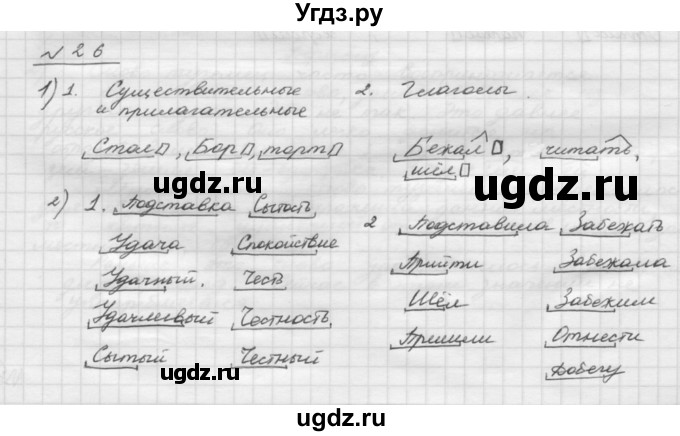 Угдз.ру
№ 26
1) 1. Существительные 2. Глаголы.
и прилагательные
Стол, Бор, торт Бежал, читать,
шёл
ugdz.ru
ugdz.ru
2) 1. Подставка Сытость 2 Подставила Забежать
Удача Спокойствие Прийти Забежала
Удачный. Честь Шёл Забежим
Удачливый Честность Пришли Отнести
Сытый Честный Добегу
ugdz.ru
ugdz.ru
ugdz.ru